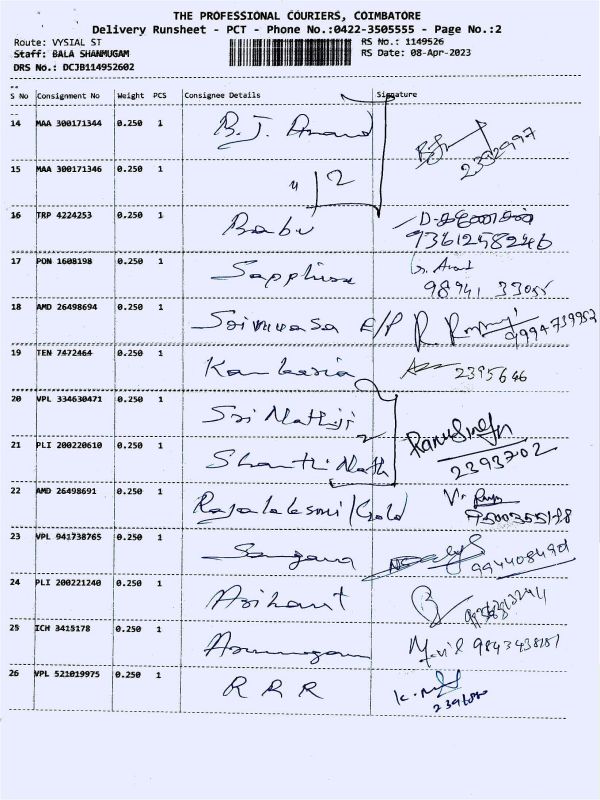 THE PROFESSIONAL COURIERS, COIMBATORE
Delivery Runsheet - PCT - Phone No.:0422-3505555 - Page No.:2
Route: VYSIAL ST RS No.: 1149526
Staff: BALA SHANMUGAM RS Date: 08-Apr-2023
DRS No.: DCJB114952602
S No Consignment No Weight PCS Consignee Details Signature
14 MAA 300171344 0.250 1 B.J. Anand
15 MAA 300171346 0.250 1 " 2
16 TRP 4224253 0.250 1 Babu
9361258246
17 PON 1608198 0.250 1 Sapphire
18 AMD 26498694 0.250 1 Srinivasa E/P
19 TEN 7472464 0.250 1 2395646
20 VPL 334630471 0.250 1 Sri Nathiji
21 PLI 200220610 0.250 1 Shanthi Nath
2393702
22 AMD 26498691 0.250 1 Rajalaksmi/Gold
23 VPL 941738765 0.250 1
24 PLI 200221240 0.250 1 Arihant
25 ICH 3415178 0.250 1 Arumugam
26 VPL 521019975 0.250 1 R R R